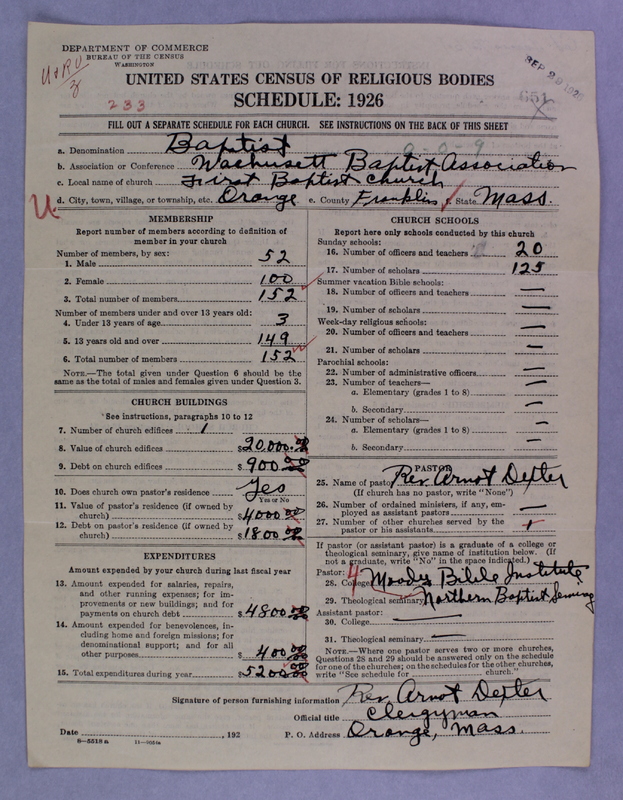 DEPARTMENT OF COMMERCE
BUREAU OF THE CENSUS
WASHINGTON
U+RU
3
SEP 29 1926
651
233
UNITED STATES CENSUS OF RELIGIOUS BODIES
SCHEDULE: 1926
FILL OUT A SEPARATE SCHEDULE FOR EACH CHURCH. SEE INSTRUCTIONS ON THE BACK OF THIS SHEET
a. Denomination Baptist 0-0-9
b. Association or Conference Wachusett Baptist Association
c. Local name of church First Baptist Church
U. d. City, town, village, or township, etc. Orange e. County Franklin f. State Mass.
MEMBERSHIP
Report number of members according to definition of
member in your church
Number of members, by sex:
1. Male 52
2. Female 100
3. Total number of members 152
Number of members under and over 13 years old:
4. Under 13 years of age 3
5. 13 years old and over 149
6. Total number of members 152
NOTE.—The total given under Question 6 should be
same as the total of males and females given under Question 3.
CHURCH BUILDINGS
See instructions, paragraphs 10 to 12
7. Number of church edifices 1
8. Value of church edifices $20,000.00
9. Debt on church edifices $900.00
10. Does church own pastor's residence Yes
Yes or No
11. Value of pastor's residence (if owned by
church) $4000.00
12. Debt on pastor's residence (if owned by
church) $1800.00
EXPENDITURES
Amount expended by your church during last fiscal year
13. Amount expended for salaries, repairs,
and other running expenses; for im-
provements or new buildings; and for
payments on church debt $4800.00
14. Amount expended for benevolences, in-
cluding home and foreign missions; for
denominational support; and for all
other purposes $400.00
15. Total expenditures during year $5200.00
CHURCH SCHOOLS
Report here only schools conducted by this church
Sunday schools:
16. Number of officers and teachers 20
17. Number of scholars 125
Summer vacation Bible schools:
18. Number of officers and teachers —
19. Number of scholars —
Week-day religious schools:
20. Number of officers and teachers —
21. Number of scholars —
Parochial schools:
22. Number of administrative officers —
23. Number of teachers—
a. Elementary (grades 1 to 8) —
b. Secondary —
24. Number of scholars—
a. Elementary (grades 1 to 8) —
b. Secondary —
PASTOR
25. Name of pastor Rev. Arnot Dexter
(If church has no pastor, write "None")
26. Number of ordained ministers, if any, em-
ployed as assistant pastors —
27. Number of other churches served by the
pastor or his assistants
If pastor (or assistant pastor) is a graduate of a college or
theological seminary, give name of institution below. (If
not a graduate, write "No" in the space indicated.)
Pastor: 4
28. College Moody Bible Institute
29. Theological seminary Northern Baptist Seminary
Assistant pastor:
30. College —
31. Theological seminary —
NOTE.—Where one pastor serves two or more churches,
Questions 28 and 29 should be answered only on the schedule
for one of the churches; on the schedules for the other churches,
write "See schedule for church."
Signature of person furnishing information Rev. Arnot Dexter
Official title Clergyman
Date , 192 P. O. Address Orange, Mass.
8—5518a